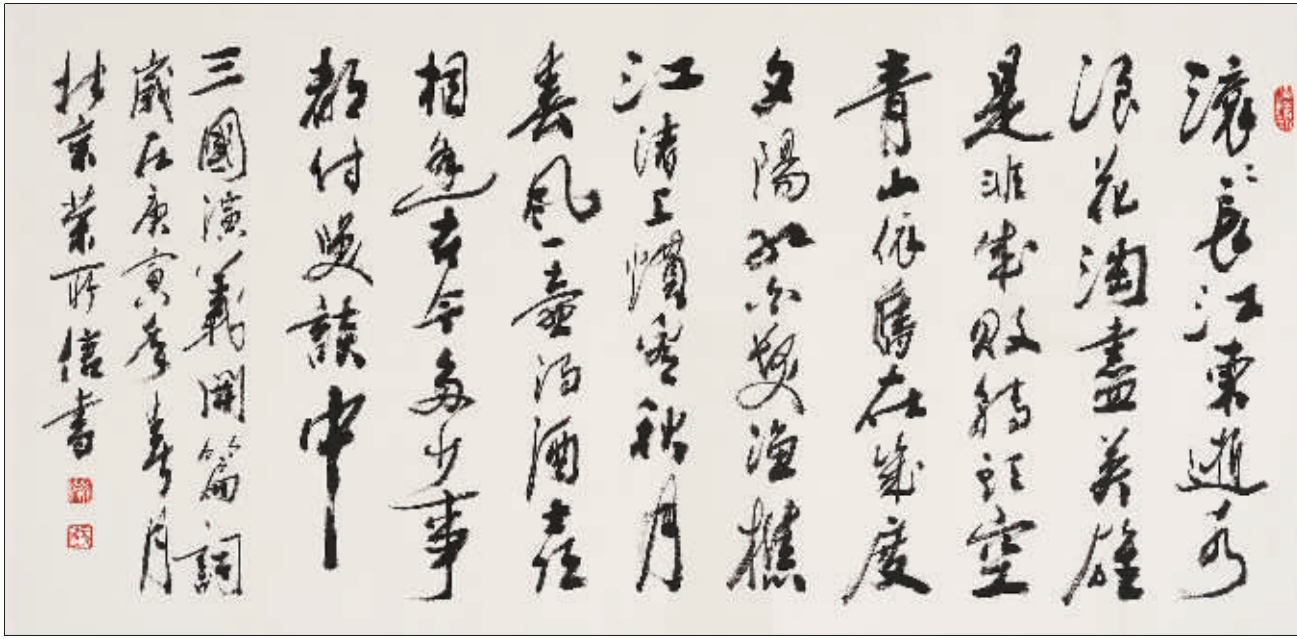 滾〻長江東逝水
浪花淘盡英雄
是非成敗轉頭空
青山依舊在幾度
夕陽紅白髮漁樵
江渚上慣看秋月
春風一壺濁酒喜
相逢古今多少事
都付笑談中
三國演義開篇詞
歲在庚寅季春月
於京榮書